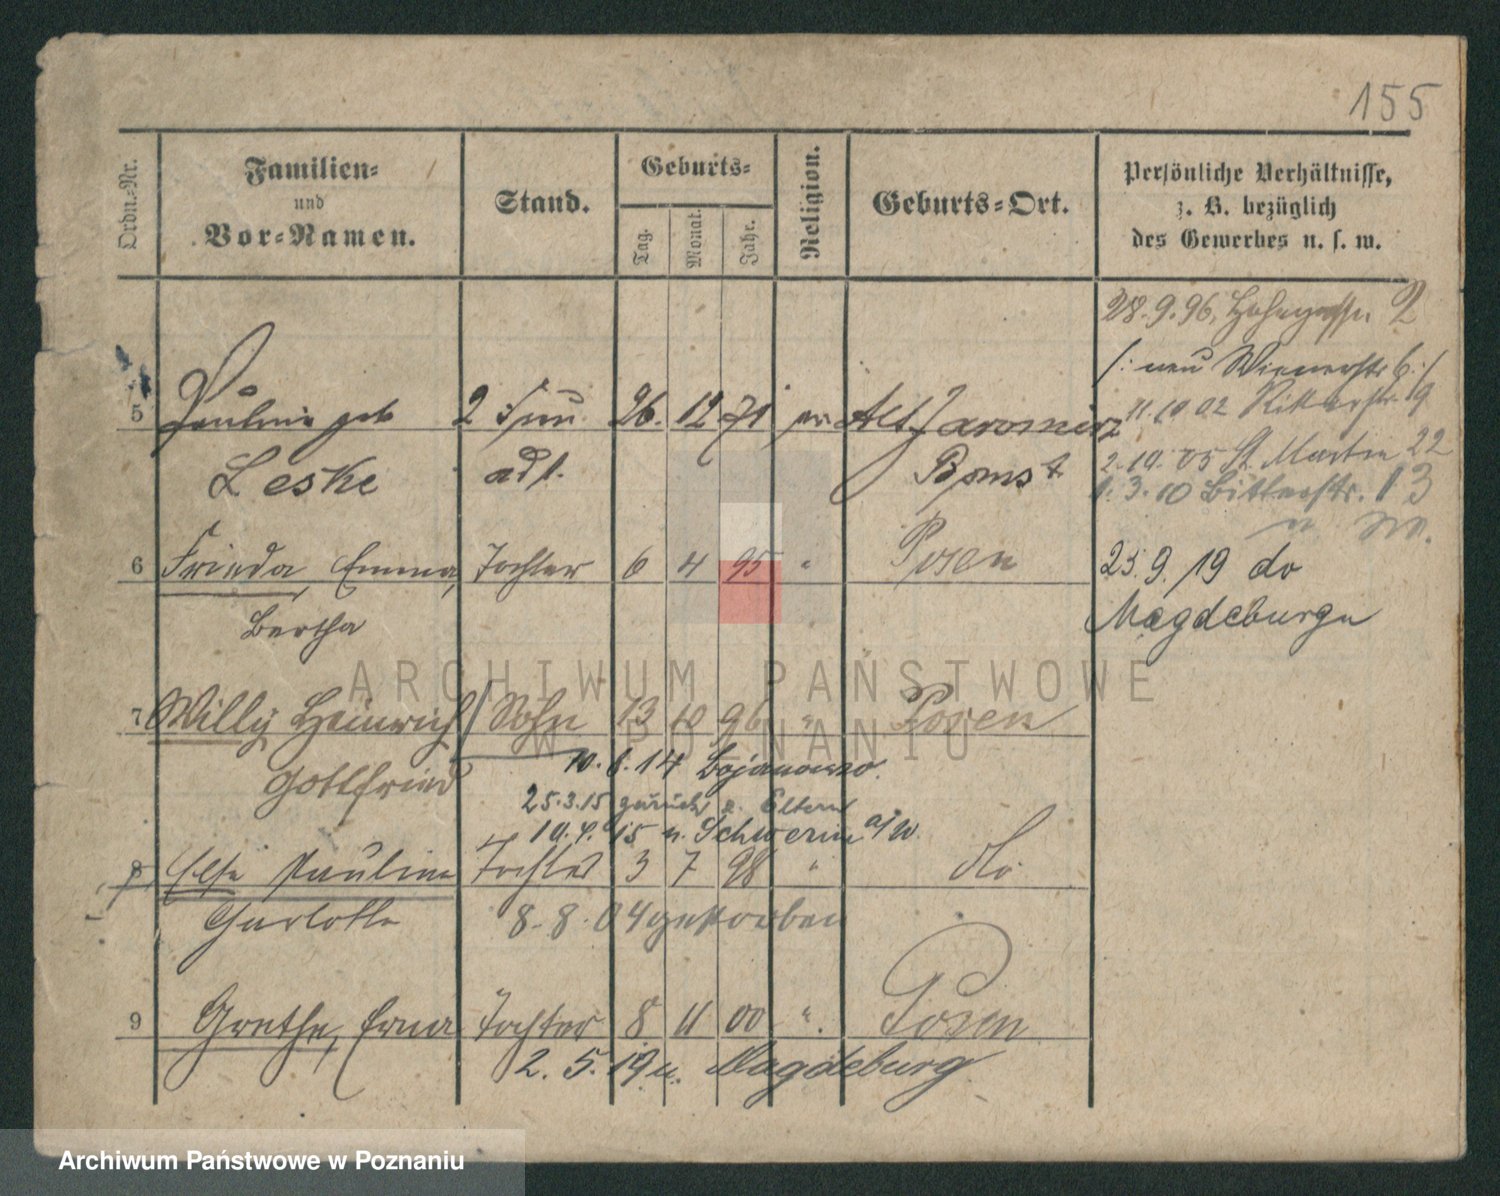 155
Ordn.-Nr.
Familien-
und
Vor-Namen.
Stand.
Geburts-
Tag.
Monat.
Jahr.
Religion.
Geburts-Ort.
Persönliche Verhältnisse,
z. B. bezüglich
des Gewerbes u. s. w.
28.9.96, 2
/: neu Wienerstr 6 :/
11.10.02 Ritterstr. 9
5 Pauline geb 2 Frau 26. 12. 71 Alt Jaromierz
2.10.05 St. Martin 22
Leske Bomst
1.3.10 Bitterstr. 13
6 Frieda, Emma, Tochter 6 4 95 " Posen
23.9.19 do
Bertha
Magdeburg
7 Willy Heinrich Sohn 13 10 96 " Posen
Gottfried
10.6.14 Bojanowo.
25.3.15 zurück z. Eltern
15 n. Schwerin a/W.
8 Else Pauline Tochter 3 7 98 " do
Charlotte 8.8.04 gestorben
9 Grethe, Erna Tochter 8 11 00 " Posen
2.5.19 n. Magdeburg
ARCHIWUM PAŃSTWOWE
W POZNANIU
Archiwum Państwowe w Poznaniu